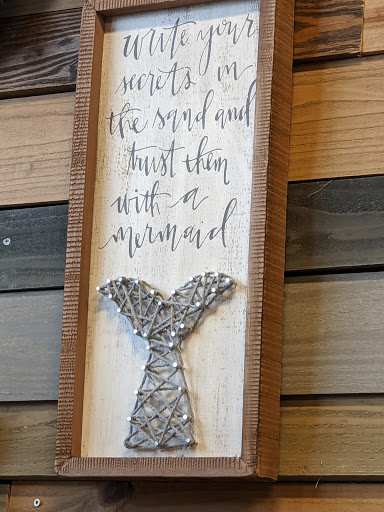 write your
secrets in
the sand and
trust them
with a
mermaid